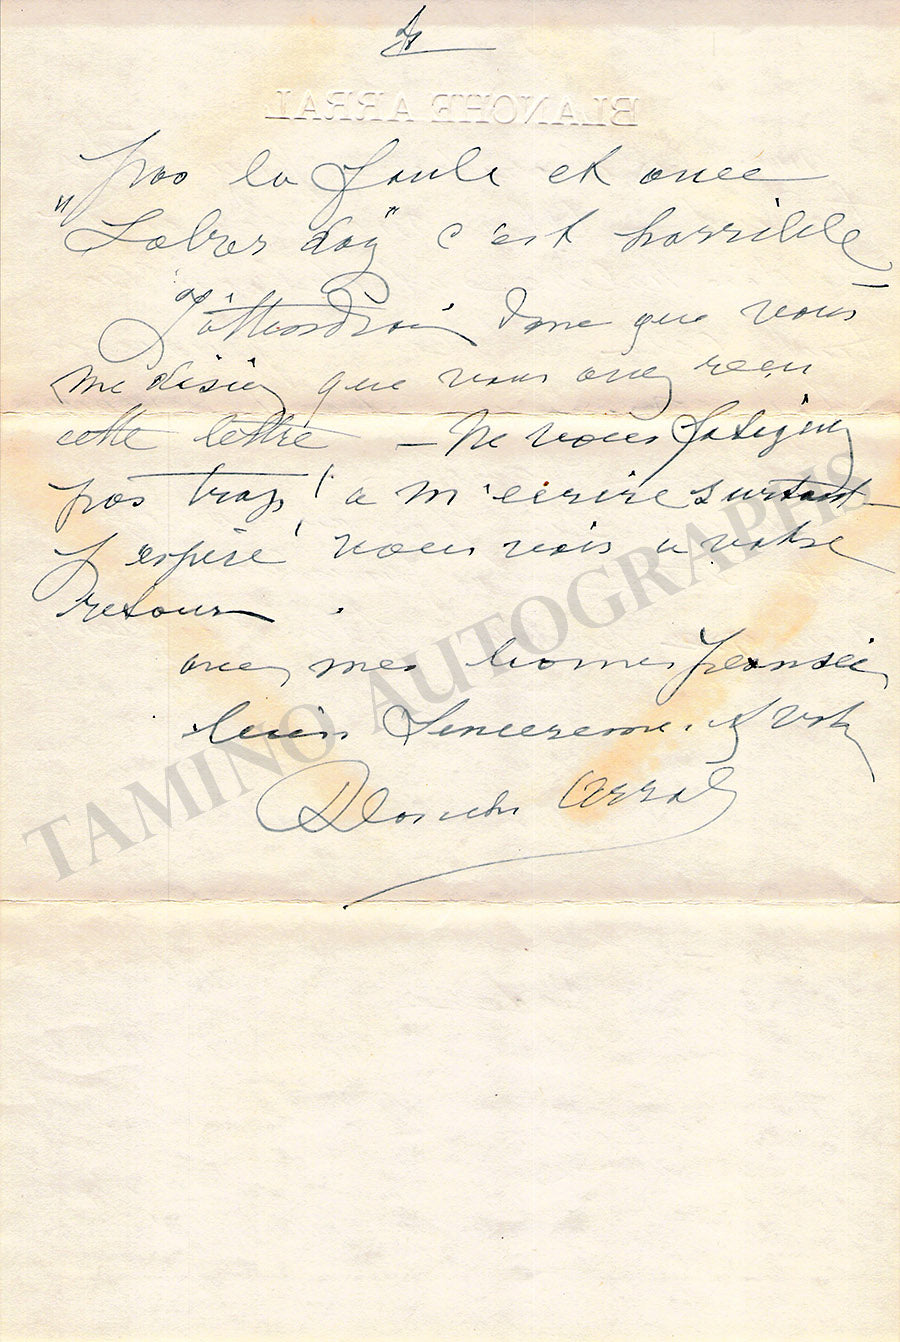 BLANCHE ARRAL
pas la foule et avec
"Labor day" c'est horrible
J'attendrai donc que vous
me disiez que vous avez reçu
cette lettre — Ne vous fatiguez
pas trop! a m'écrire surtout
J'espère vous voir a votre
retour.
avec mes bonnes pensées
bien sincerement votre
Blanche Arral
TAMINO AUTOGRAPHS